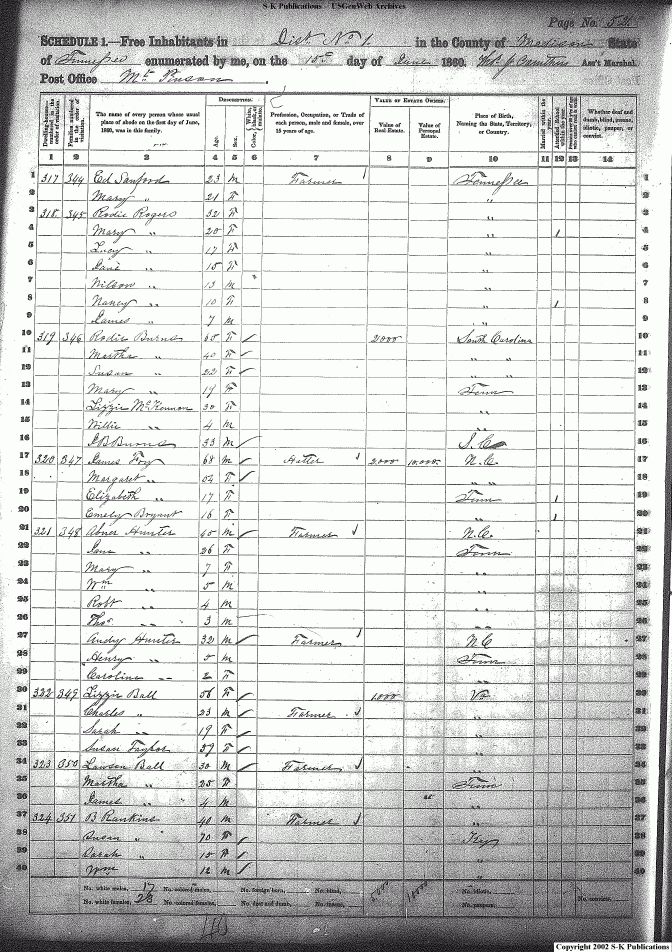 S-K Publications - USGenWeb Archives
Page No. 52
SCHEDULE 1.—Free Inhabitants in Dist No 1. in the County of Madison State
of Tennessee enumerated by me, on the 15 day of June 1860. Ass't Marshal.
Post Office Mt Pinson.
Dwelling-houses numbered in the order of visitation. Families numbered in the order of visitation. The name of every person whose usual place of abode on the first day of June, 1860, was in this family. DESCRIPTION. Age. Sex. Color, Profession, Occupation, or Trade of each person, male and female, over 15 years of age. VALUE OF ESTATE OWNED. Value of Real Estate. Value of Personal Estate. Place of Birth, Naming the State, Territory, or Country. Married within the year. Attended School within the year. Whether deaf and dumb, blind, insane, idiotic, pauper, or convict.
1 2 3 4 5 6 7 8 9 10 11 12 13 14
1 317 344 Ed Sanford 23 m Farmer Tennessee 1
2 Mary " 21 F " 2
3 318 345 Rodie Rogers 32 F " 3
4 Mary " 20 F " 1 4
5 Lucy " 17 F " 5
6 Jane " 15 F " 6
7 Wilson " 13 m " 7
8 Nancy " 10 F " 1 8
9 James " 7 m " 9
10 319 346 Rodie Burns 65 F 2000 South Carolina 10
11 Martha " 40 F " " 11
12 Susan " 22 F " 12
13 Mary " 19 F Tenn 13
14 Lizzie McKennon 30 F " 14
15 Willie " 4 m " 15
16 Burns 33 m S.C. 16
17 320 347 James Fry 68 m Hatter 2,000 10,000 N.C. 17
18 Margaret " 54 F " " 18
19 Elizabeth " 17 F Tenn 1 19
20 Emely Bryant 16 F " " 1 20
21 321 348 Abner Hunter 45 m Farmer N.C. 21
22 Jane " 26 F Tenn 22
23 Mary " 7 F " 23
24 Wm " 5 m " 24
25 Robt " 4 m " 25
26 Thos " 3 m " " 26
27 Andy Hunter 32 m Farmer N.C 27
28 Henry " 5 m Tenn 28
29 Caroline " 2 F " 29
30 322 349 Lizzie Ball 56 F 1,000 Va 30
31 Charles " 23 m Farmer " 31
32 Sarah " 19 F " 32
33 Susan Taylor 27 F " 33
34 323 350 Lawson Ball 30 m Farmer " 34
35 Martha " 25 F Tenn 35
36 James " 4 m " 36
37 324 351 B Rankins 40 m Farmer " 37
38 Susan " 70 F Ky 38
39 Sarah " 15 F " 39
40 Wm " 12 m " 40
No. white males, 17 No. colored males, No. foreign born, No. blind, 5,000 No. idiotic, No. convicts,
No. white females, 23 No. colored females, No. deaf and dumb, No. insane, No. paupers,
Copyright 2002 S-K Publications